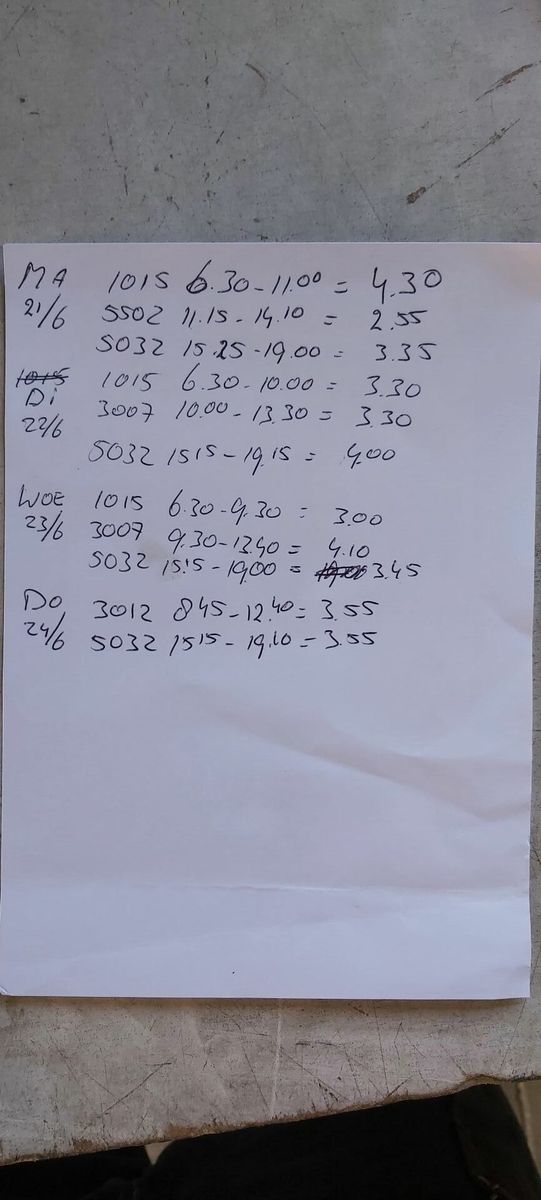 MA 1015 6.30-11.00 = 4.30
21/6 5502 11.15-14.10 = 2.55
5032 15.25-19.00 = 3.35
1015 1015 6.30-10.00 = 3.30
Di 3007 10.00-13.30 = 3.30
22/6
5032 1515-19.15 = 4.00
WOE 1015 6.30-9.30 = 3.00
23/6 3007 9.30-13.40 = 4.10
5032 15.15-19.00 = 3.45
DO 3012 845-12.40 = 3.55
24/6 5032 1515-19.10 = 3.55